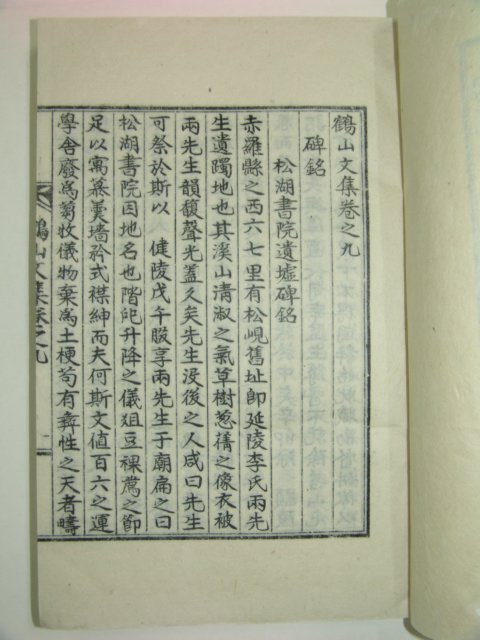 鶴山文集卷之九
碑銘
松湖書院遺墟碑銘
赤羅縣之西六七里有松峴舊址卽延陵李氏兩先
生遺躅地也其溪山淸淑之氣草樹蔥蒨之像衣被
兩先生韻馥聲光盖久矣先生沒後之人咸曰先生
可祭於斯以 健陵戊午腏享兩先生于廟扁之曰
松湖書院因地名也階戺升降之儀俎豆祼薦之節
足以寓慕羹墻矜式襟紳而夫何斯文値百六之運
學舍廢爲蒭牧儀物棄爲土梗苟有彛性之天者疇
鶴山文集卷之九 一